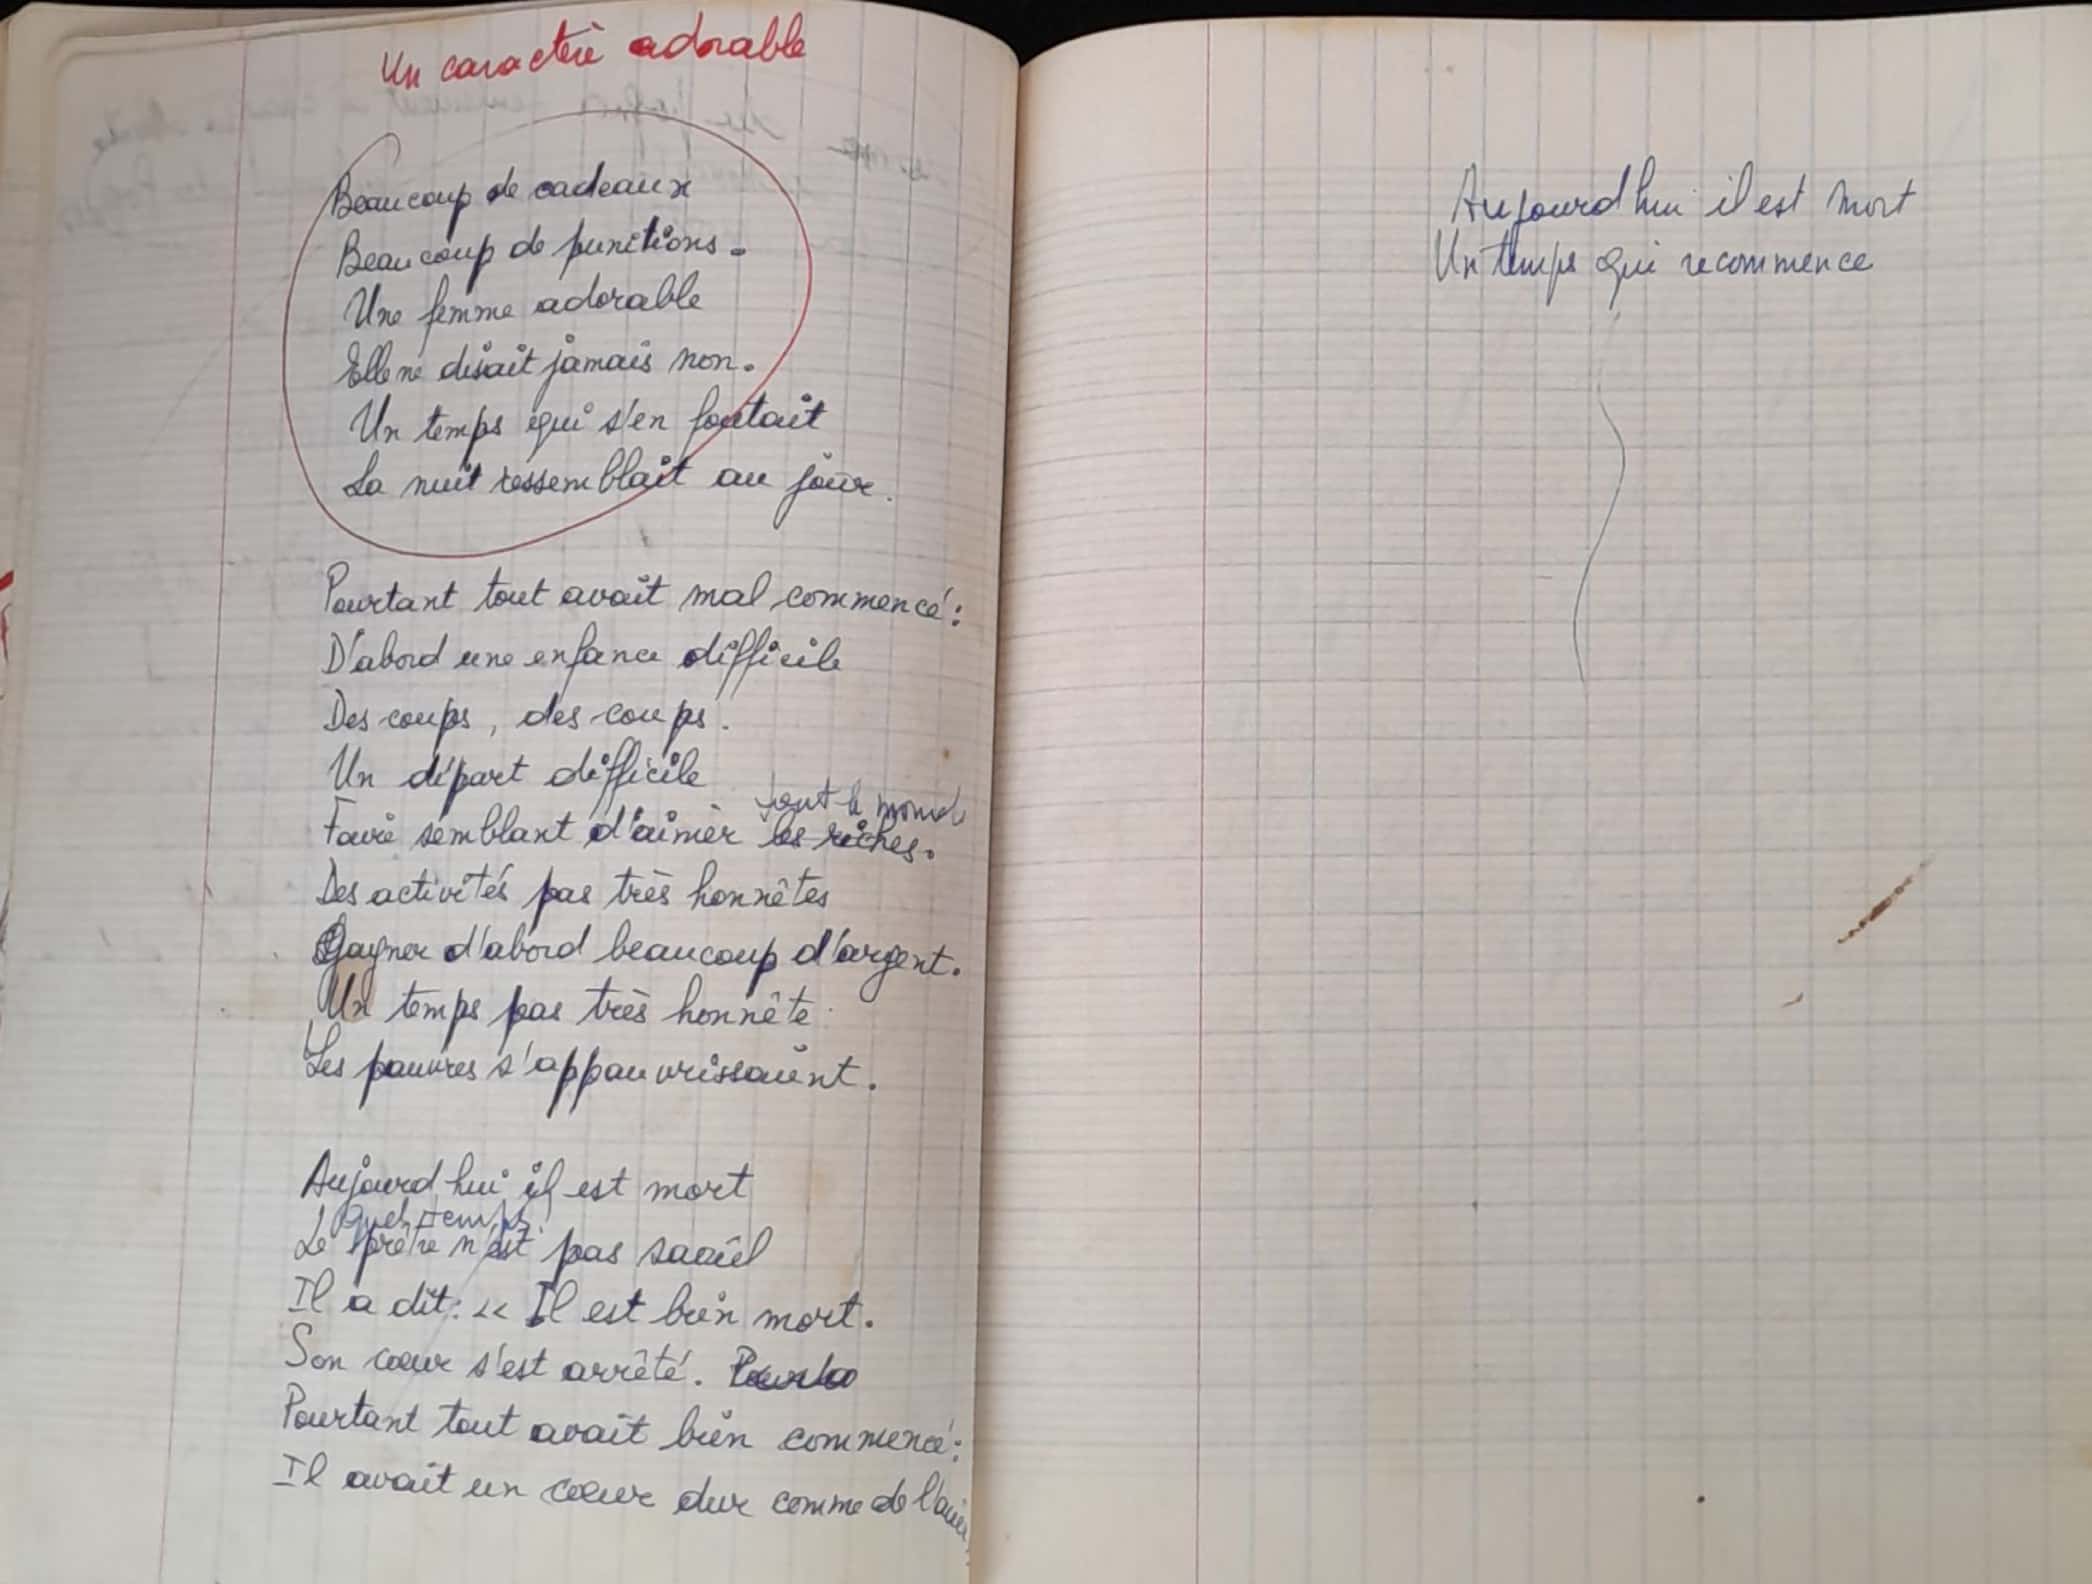 Un caractère adorable
Beaucoup de cadeaux
Beaucoup de punitions.
Une femme adorable
Elle ne disait jamais non.
Un temps qui s'en foutait
La nuit ressemblait au jour.
Pourtant tout avait mal commencé :
D'abord une enfance difficile
Des coups, des coups.
Un départ difficile
tout le monde
Faire semblant d'aimer les riches.
Des activités pas très honnêtes
Gagner d'abord beaucoup d'argent.
Un temps pas très honnête
Les pauvres s'appauvrissaient.
Aujourd'hui il est mort
Quel temps
Le prêtre n'est pas
Il a dit : « Il est bien mort.
Son cœur s'est arrêté.
Pourtant tout avait bien commencé :
Il avait un cœur dur comme de l'acier
Aujourd'hui il est mort
Un temps qui recommence